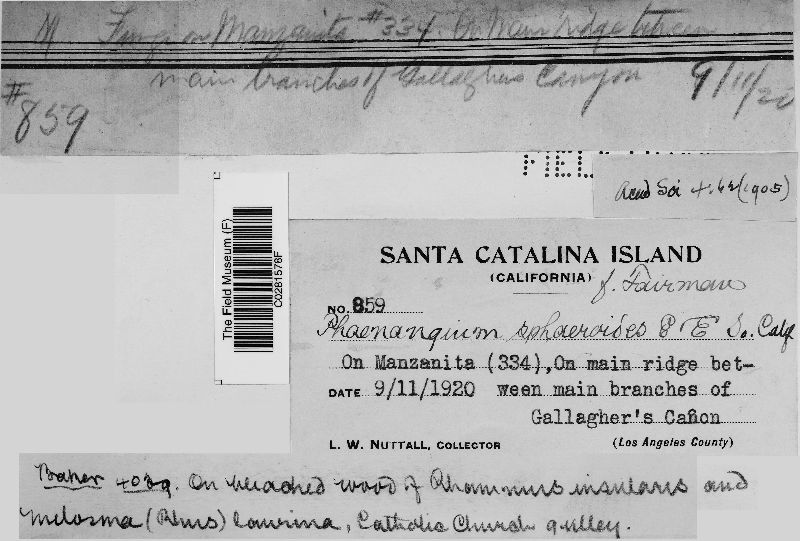 M Fungi on Manzanita #334. On Main ridge between
main branches of Gallaghers Canyon 9/11/20
#859
FIEL
Acad Sci
(1905)
The Field Museum (F)
C0281578F
SANTA CATALINA ISLAND
(CALIFORNIA)
f. Fairman
NO. 859
Phaenangium sphaeroides So. Calif
On Manzanita (334), On main ridge bet-
DATE 9/11/1920 ween main branches of
Gallagher's Cañon
L. W. NUTTALL, COLLECTOR (Los Angeles County)
Baker On bleached wood of Rhamnus insularis and
(Rhus) laurina, Catholic Church gulley.